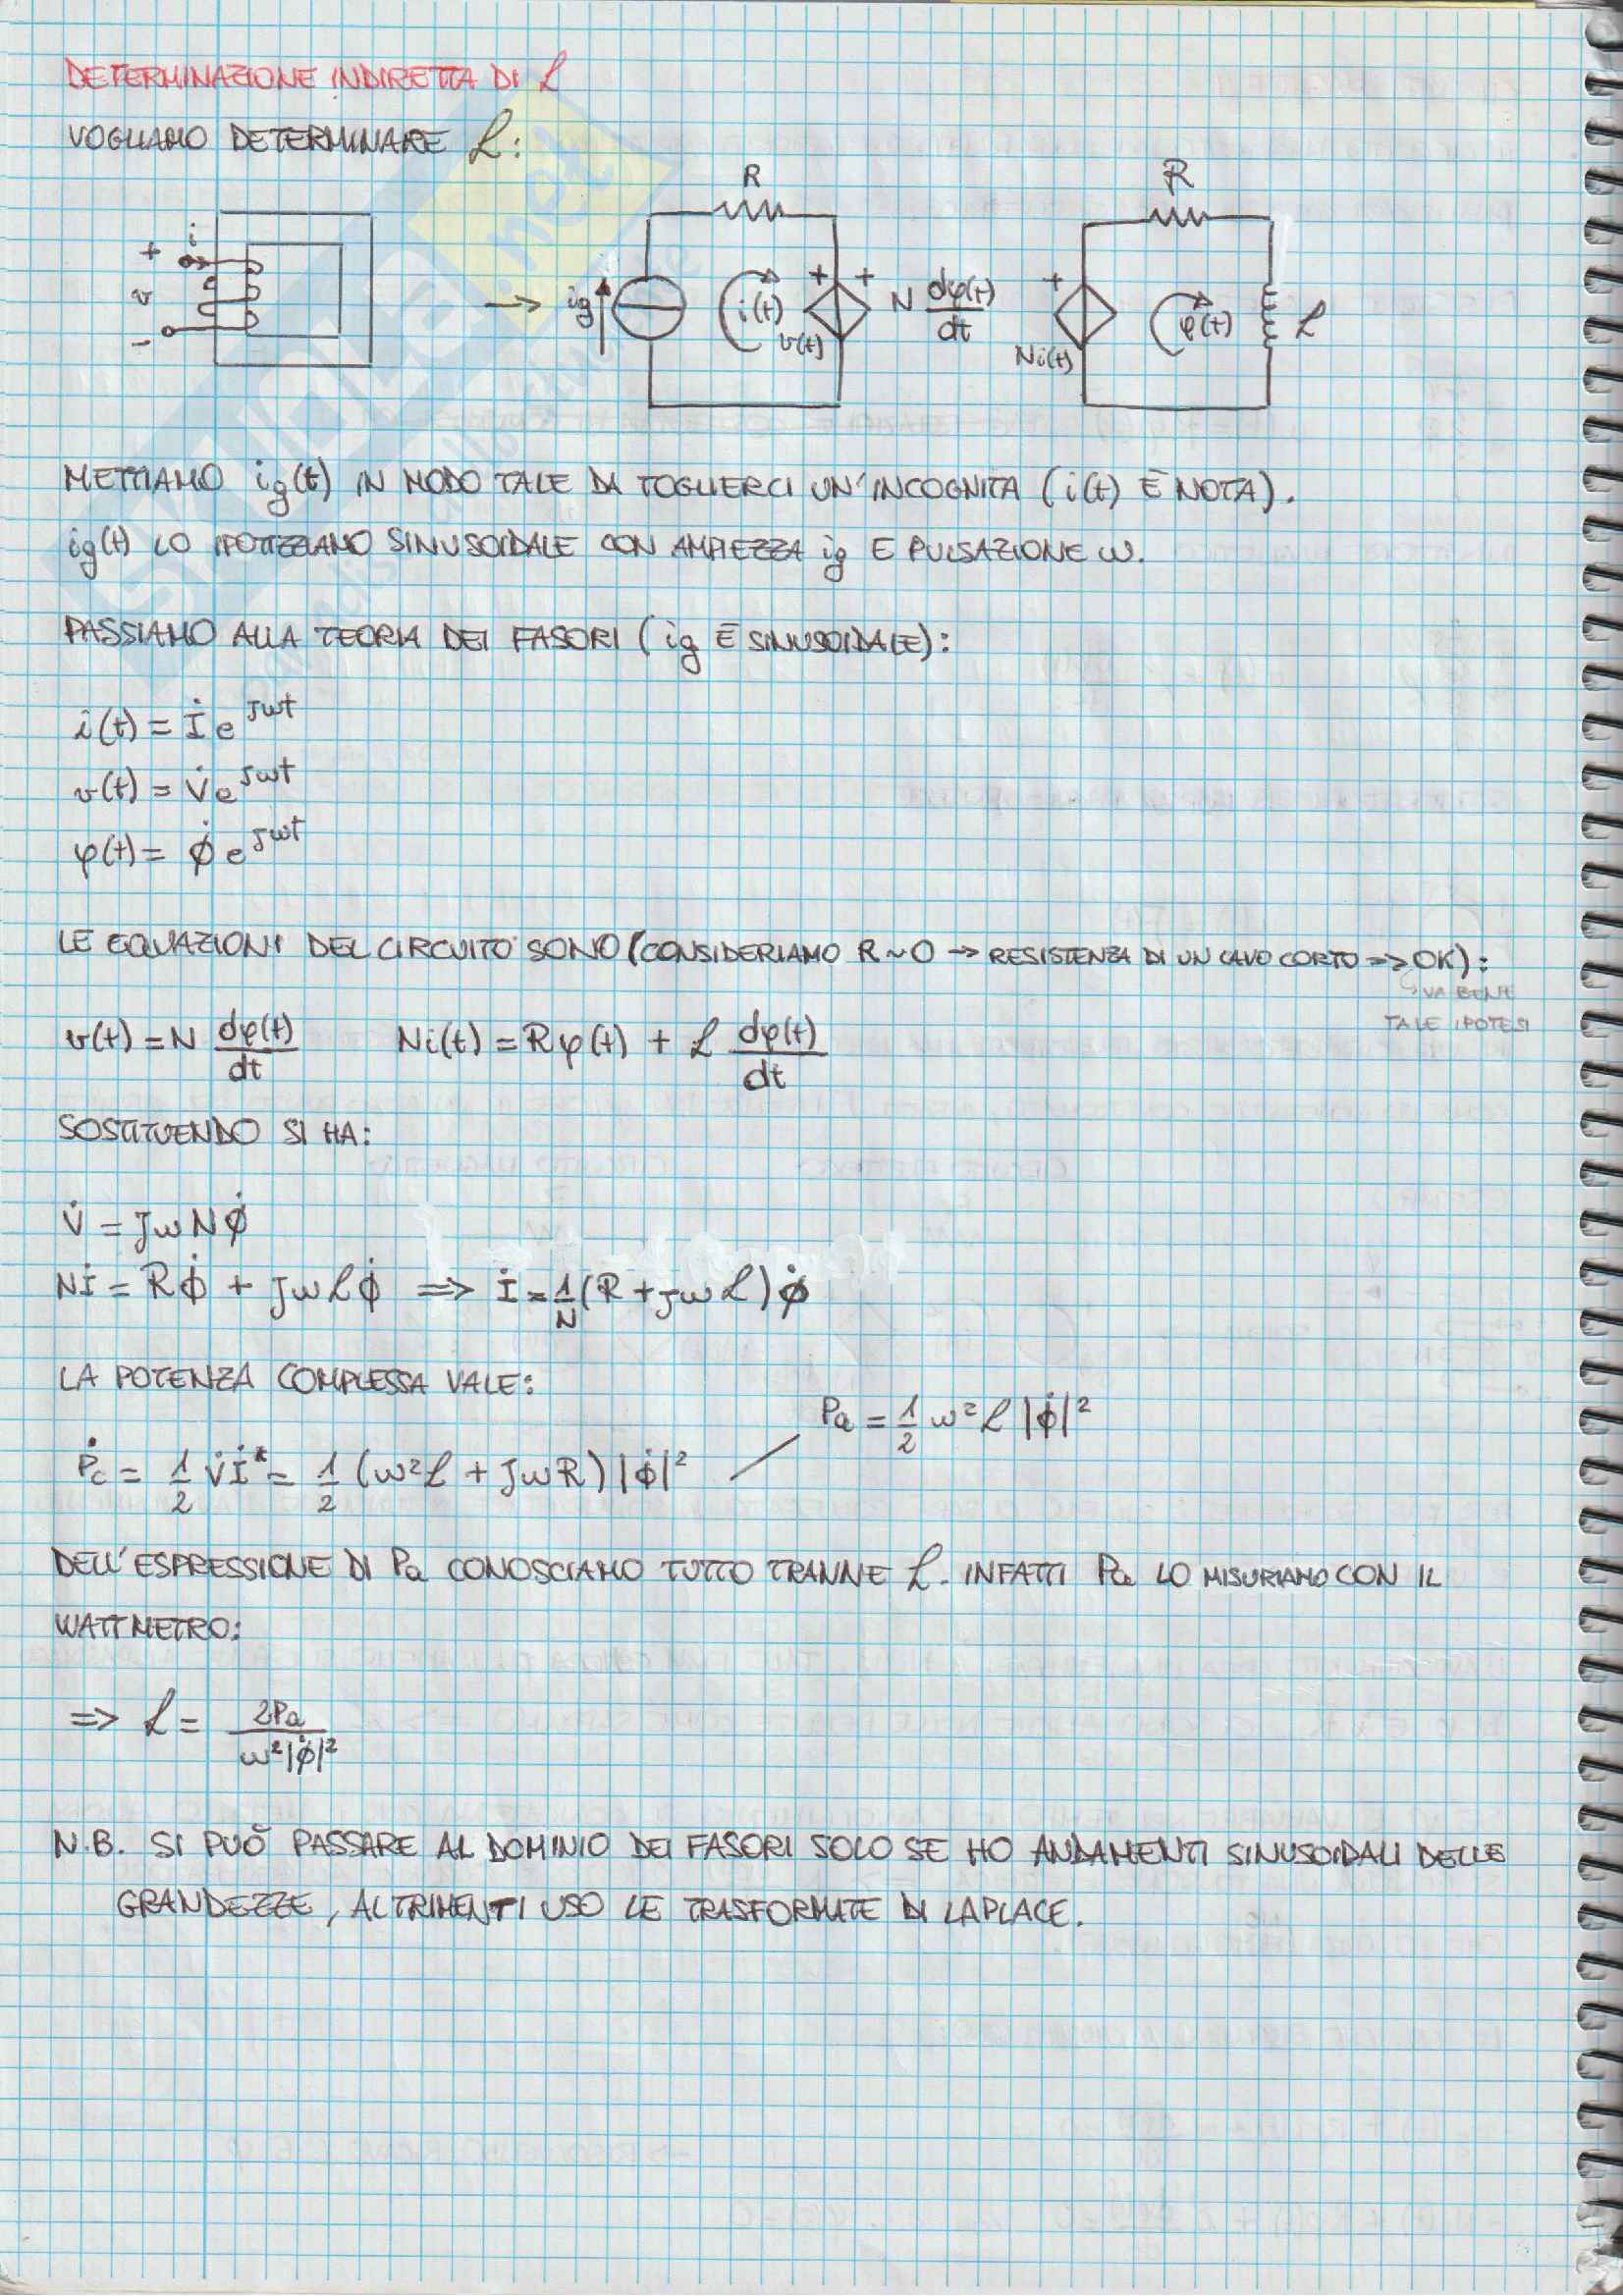 DETERMINAZIONE INDIRETTA DI ℒ
VOGLIAMO DETERMINARE ℒ:
R
ℛ
+ i
v
-
→
ig
i(t)
+ +
v(t)
N dφ(t)/dt
+
Ni(t)
φ(t)
ℒ
METTIAMO ig(t) IN MODO TALE DA TOGLIERCI UN'INCOGNITA (i(t) È NOTA).
ig(t) LO IPOTIZZIAMO SINUSOIDALE CON AMPIEZZA ig E PULSAZIONE ω.
PASSIAMO ALLA TEORIA DEI FASORI (ig È SINUSOIDALE):
i(t) = İ e^jωt
v(t) = V̇ e^jωt
φ(t) = ϕ̇ e^jωt
LE EQUAZIONI DEL CIRCUITO SONO (CONSIDERIAMO R~0 → RESISTENZA DI UN CAVO CORTO => OK):
↳ VA BENE
TALE IPOTESI
v(t) = N dφ(t)/dt Ni(t) = ℛφ(t) + ℒ dφ(t)/dt
SOSTITUENDO SI HA:
V̇ = jωNϕ̇
Nİ = ℛϕ̇ + jωℒϕ̇ => İ = 1/N (ℛ + jωℒ)ϕ̇
LA POTENZA COMPLESSA VALE:
Pa = 1/2 ω²ℒ|ϕ̇|²
Ṗc = 1/2 V̇İ* = 1/2 (ω²ℒ + jωℛ)|ϕ̇|²
DELL'ESPRESSIONE DI Pa CONOSCIAMO TUTTO TRANNE ℒ. INFATTI Pa LO MISURIAMO CON IL
WATTMETRO:
=> ℒ = 2Pa/ω²|ϕ̇|²
N.B. SI PUÒ PASSARE AL DOMINIO DEI FASORI SOLO SE HO ANDAMENTI SINUSOIDALI DELLE
GRANDEZZE, ALTRIMENTI USO LE TRASFORMATE DI LAPLACE.